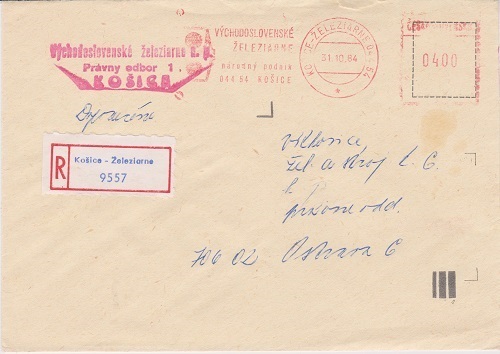 Východoslovenské železiarne n. p.
Právny odbor 1
KOŠICE
VÝCHODOSLOVENSKÉ
ŽELEZIARNE
národný podnik
044 54 KOŠICE
KOŠICE-ŽELEZIARNE 044 54
31.10.84
ČESKOSLOVENSKO
0400
Doporučeně
R
Košice - Železiarne
9557
Vítkovice
žel. a stroj. k. G.
právne odd.
706 02 Ostrava 6